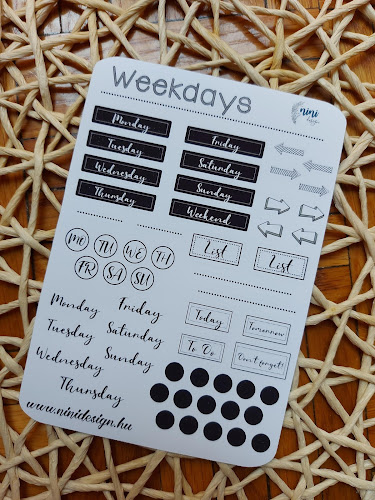 Weekdays
nini
design
Monday
Tuesday
Wednesday
Thursday
Friday
Saturday
Sunday
Weekend
MO TU WE TH
FR SA SU
List List
Monday
Tuesday
Wednesday
Thursday
Friday
Saturday
Sunday
Today Tomorrow
To Do Don't forget!
www.ninidesign.hu